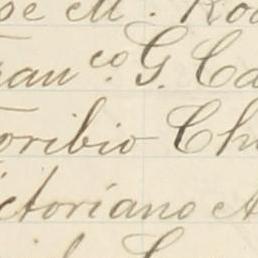 se M. Ro
ran co. G. Ca
oribio Ch
ctoriano A